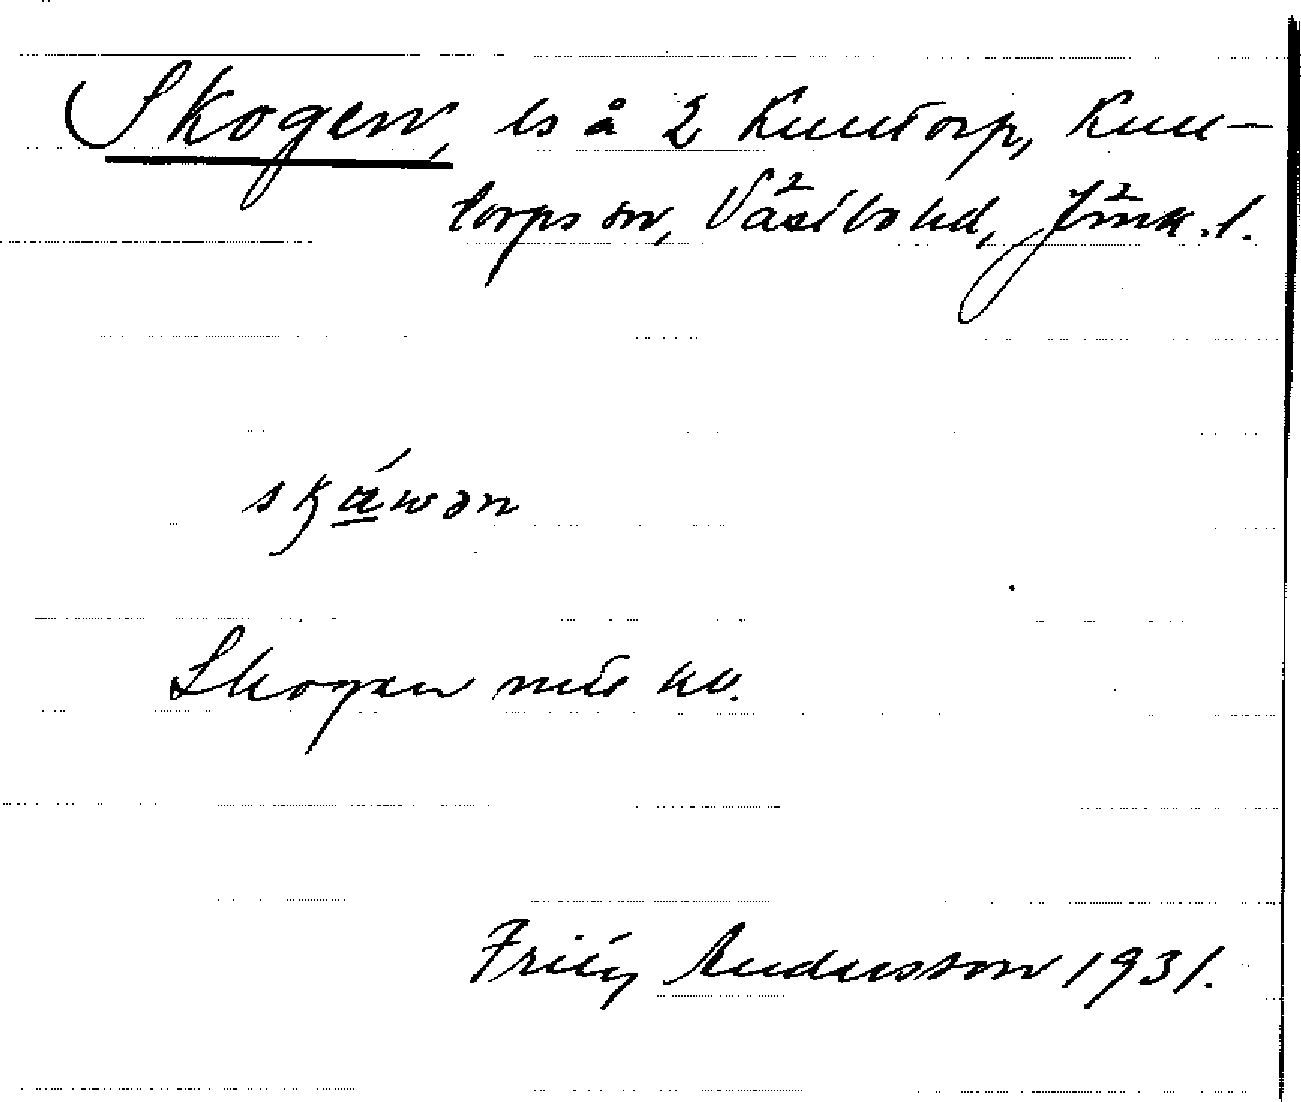 Skogen, ls å 2 Kulltorp, Kull-
torps sn, Västbo hd, Jönk. l.
skáwən
Skogen
Fritz Andersson 1931.